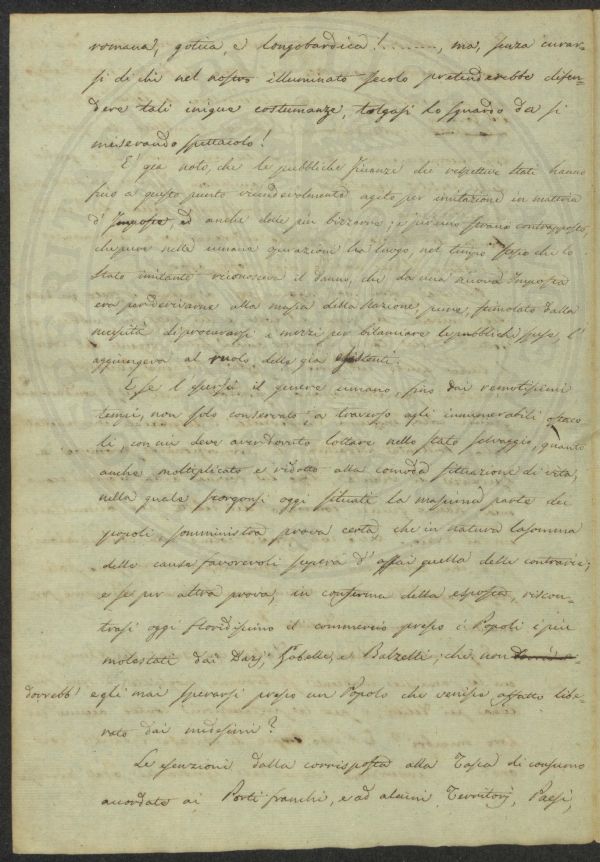 romana, gotica, e longobardica! ........, ma, senza curar-
si di chi nel nostro illuminato secolo pretenderebbe difen-
dere tali inique costumanze, tolgasi lo sguardo da sì
miserando spettacolo!
E' già noto, che le pubbliche finanze dei respettivi Stati hanno
fino a questo punto vicendevolmente agito per imitazione in materia
d'Imposte, ed anche delle più bizzarre; e per uno strano contrapposto,
che pure nelle umane operazioni ha luogo, nel tempo stesso che lo
Stato imitante riconosceva il danno, che da una nuova Imposta
era per derivarne alla massa della Nazione, pure, stimolato dalla
necessità di procurarsi i mezzi per bilanciare le pubbliche spese, l'
aggiungeva al ruolo delle già esistenti.
E se l'essersi il genere umano, fino dai remotissimi
tempi, non solo conservato, a traverso agli innumerabili ostaco
li, con cui deve aver dovuto lottare nello stato selvaggio, quanto
anche moltiplicato e ridotto alla comoda situazione di vita,
nella quale scorgonsi oggi situati la massima parte dei
popoli, somministra prova certa, che in natura la somma
delle cause favorevoli supera d'assai quella delle contrarie;
e se per altra prova, in conferma della esposta, riscon-
trasi oggi floridissimo il commercio presso i Popoli i più
molestati dai Dazj, Gabelle, e Balzelli; che non
dovrebb' egli mai sperarsi presso un Popolo che venisse affatto libe-
rato dai medesimi?
Le esenzioni dalla corrisposta alla Tassa di consumo
accordate ai Porti franchi, e ad alcuni Territorj, Paesi,